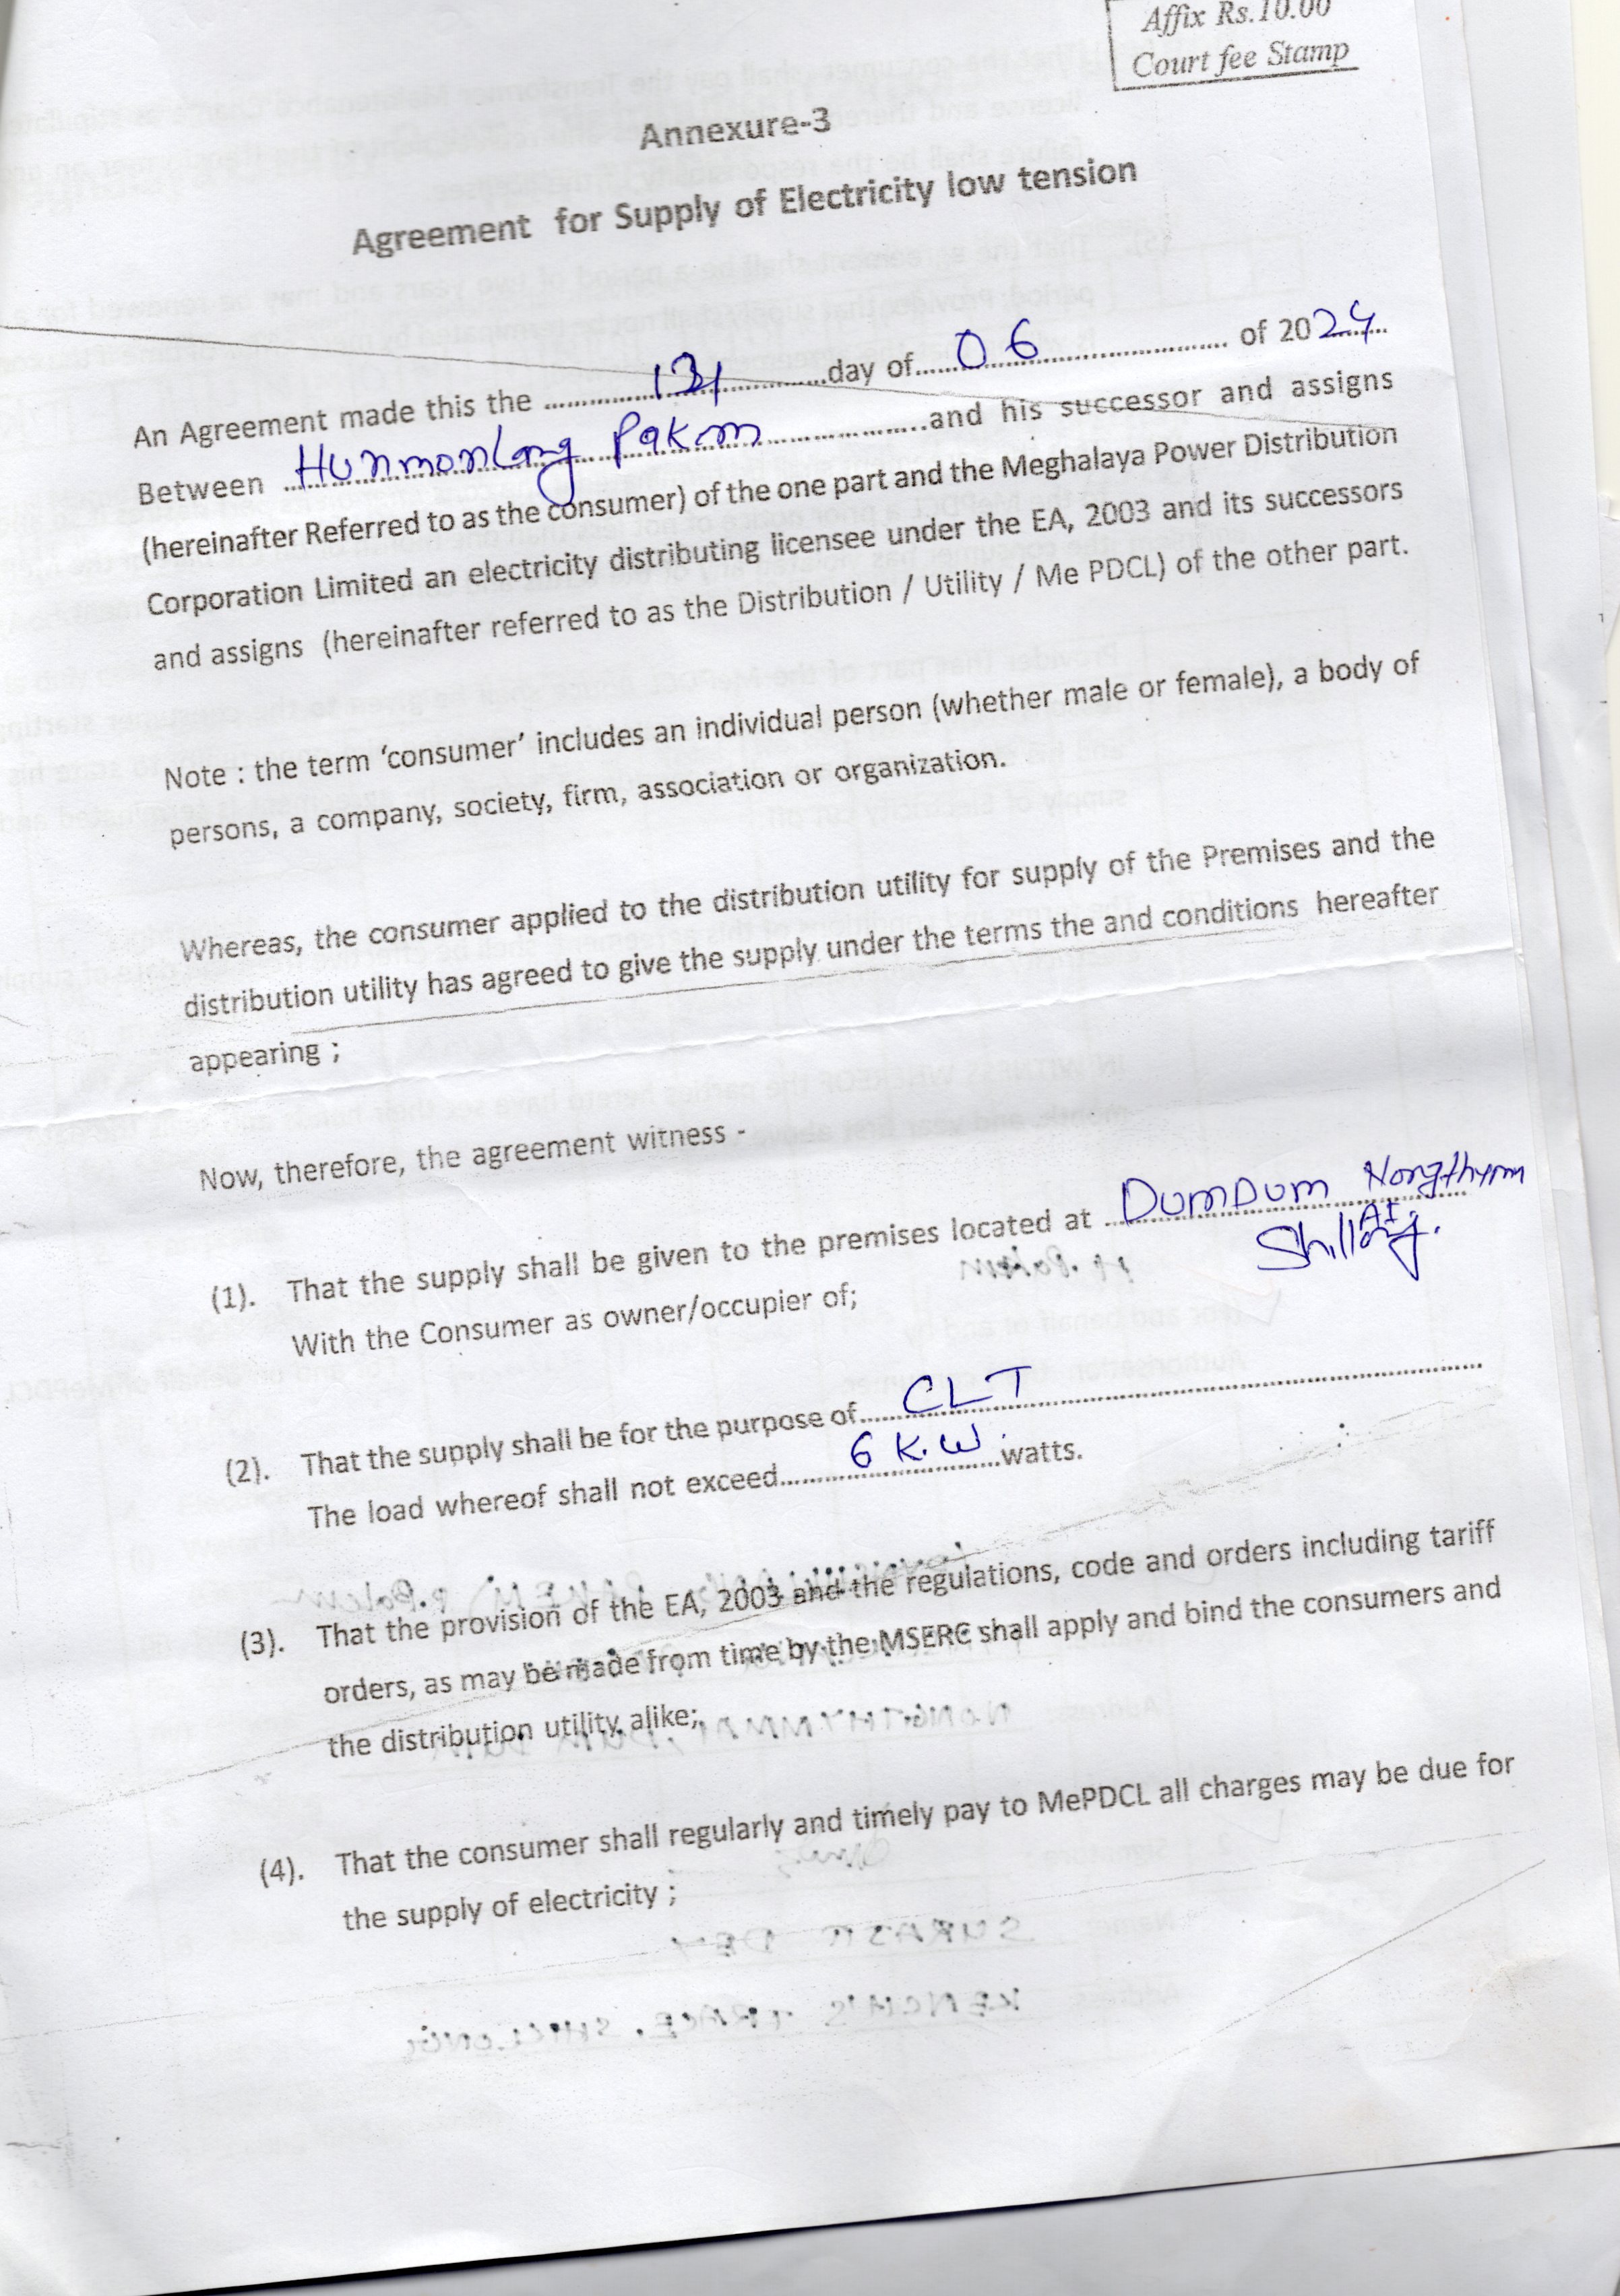 Affix Rs.10.00
Court fee Stamp
Annexure-3
Agreement for Supply of Electricity low tension
An Agreement made this the ........ 13/ ........day of..... 06 ........ of 2024......
Between ..Hunmonlang Pakem ........and his successor and assigns
(hereinafter Referred to as the consumer) of the one part and the Meghalaya Power Distribution
Corporation Limited an electricity distributing licensee under the EA, 2003 and its successors
and assigns (hereinafter referred to as the Distribution / Utility / Me PDCL) of the other part.
Note : the term ‘consumer’ includes an individual person (whether male or female), a body of
persons, a company, society, firm, association or organization.
Whereas, the consumer applied to the distribution utility for supply of the Premises and the
distribution utility has agreed to give the supply under the terms the and conditions hereafter
appearing ;
Now, therefore, the agreement witness -
(1). That the supply shall be given to the premises located at ..DumDum Nongthymm
AI
Shillong.
With the Consumer as owner/occupier of;
(2). That the supply shall be for the purpose of...... CLT ..............
The load whereof shall not exceed...... 6 K.W. ......watts.
(3). That the provision of the EA, 2003 and the regulations, code and orders including tariff
orders, as may be made from time by the MSERC shall apply and bind the consumers and
the distribution utility alike;
(4). That the consumer shall regularly and timely pay to MePDCL all charges may be due for
the supply of electricity ;